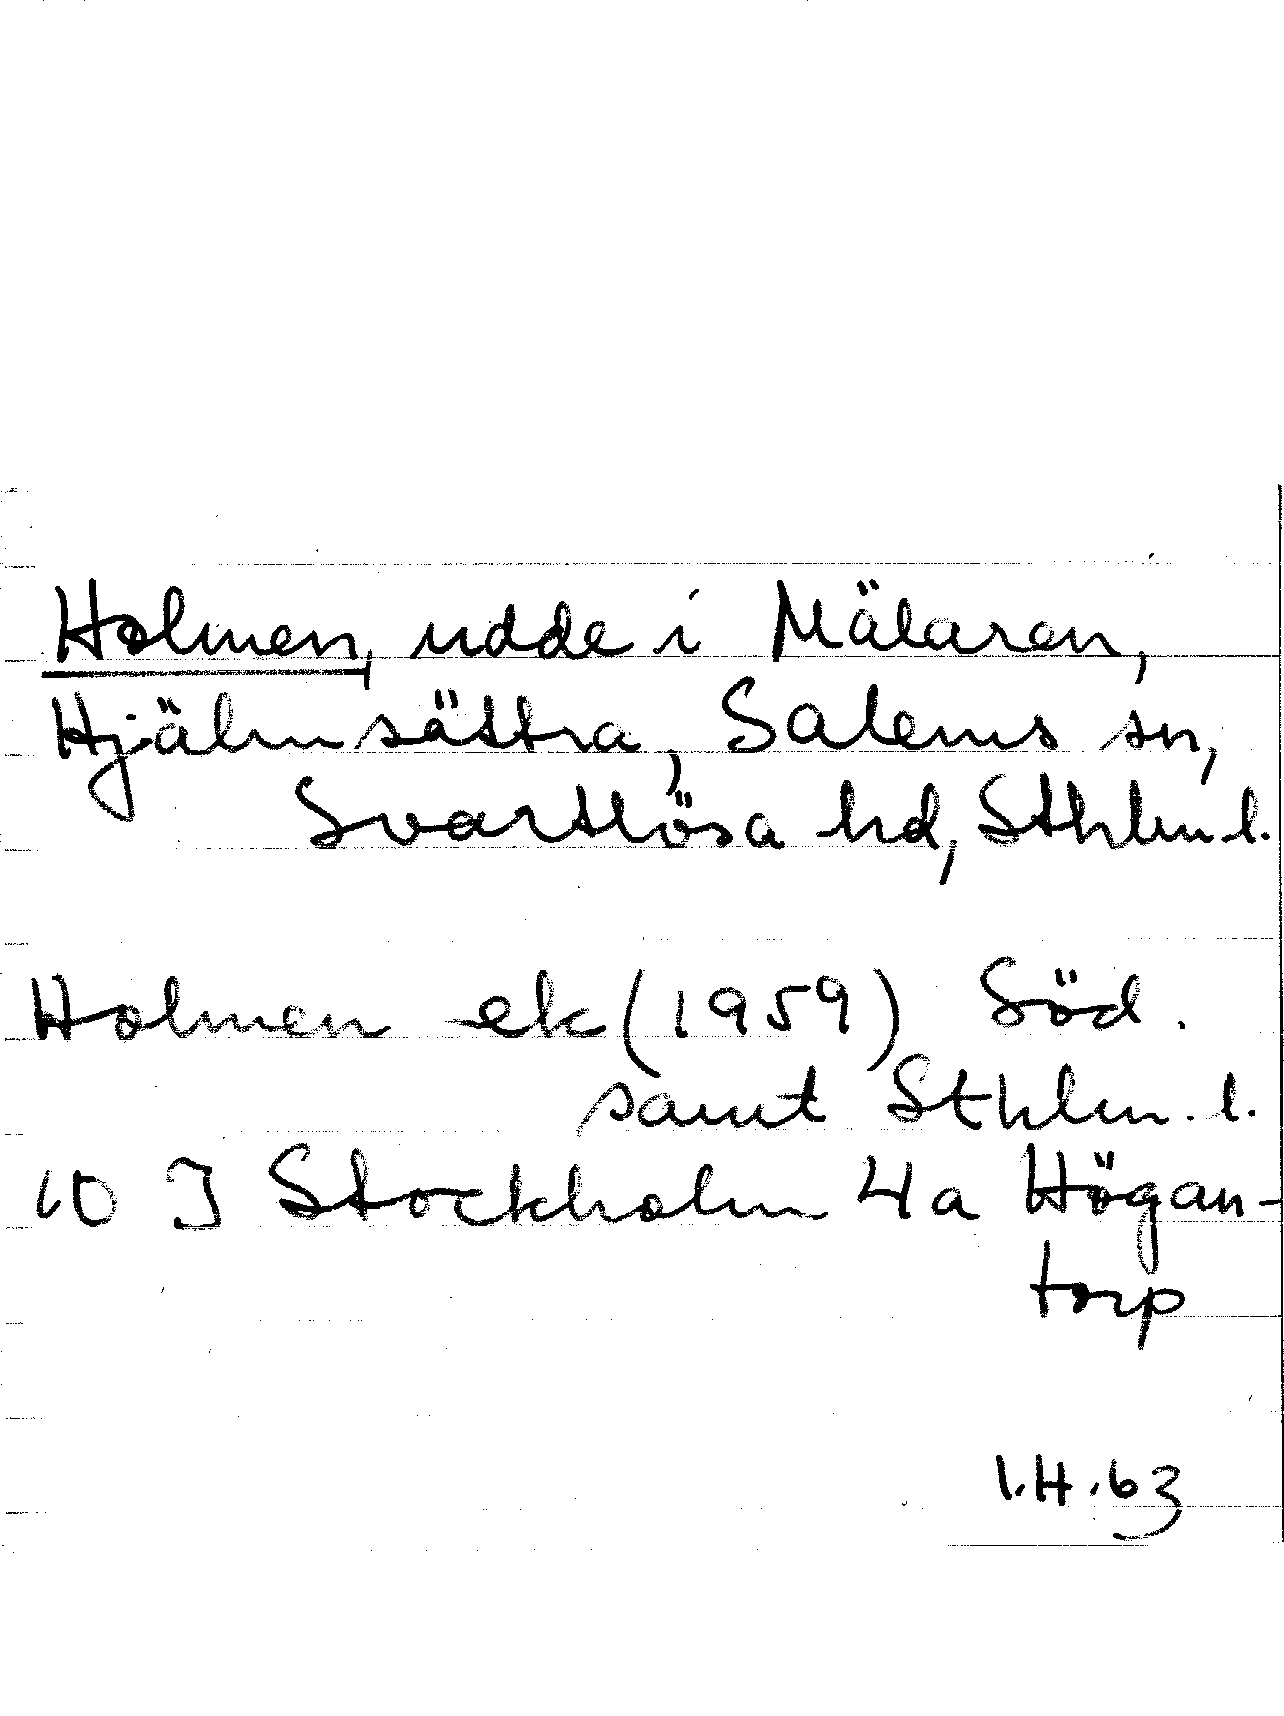 Holmen, udde i Mälaren,
Hjälmsättra, Salems sn,
Svartlösa hd, Sthlm l.
Holmen ek (1959) Söd.
samt Sthlm. l.
10 I Stockholm 4a Högan-
torp
I.H.63